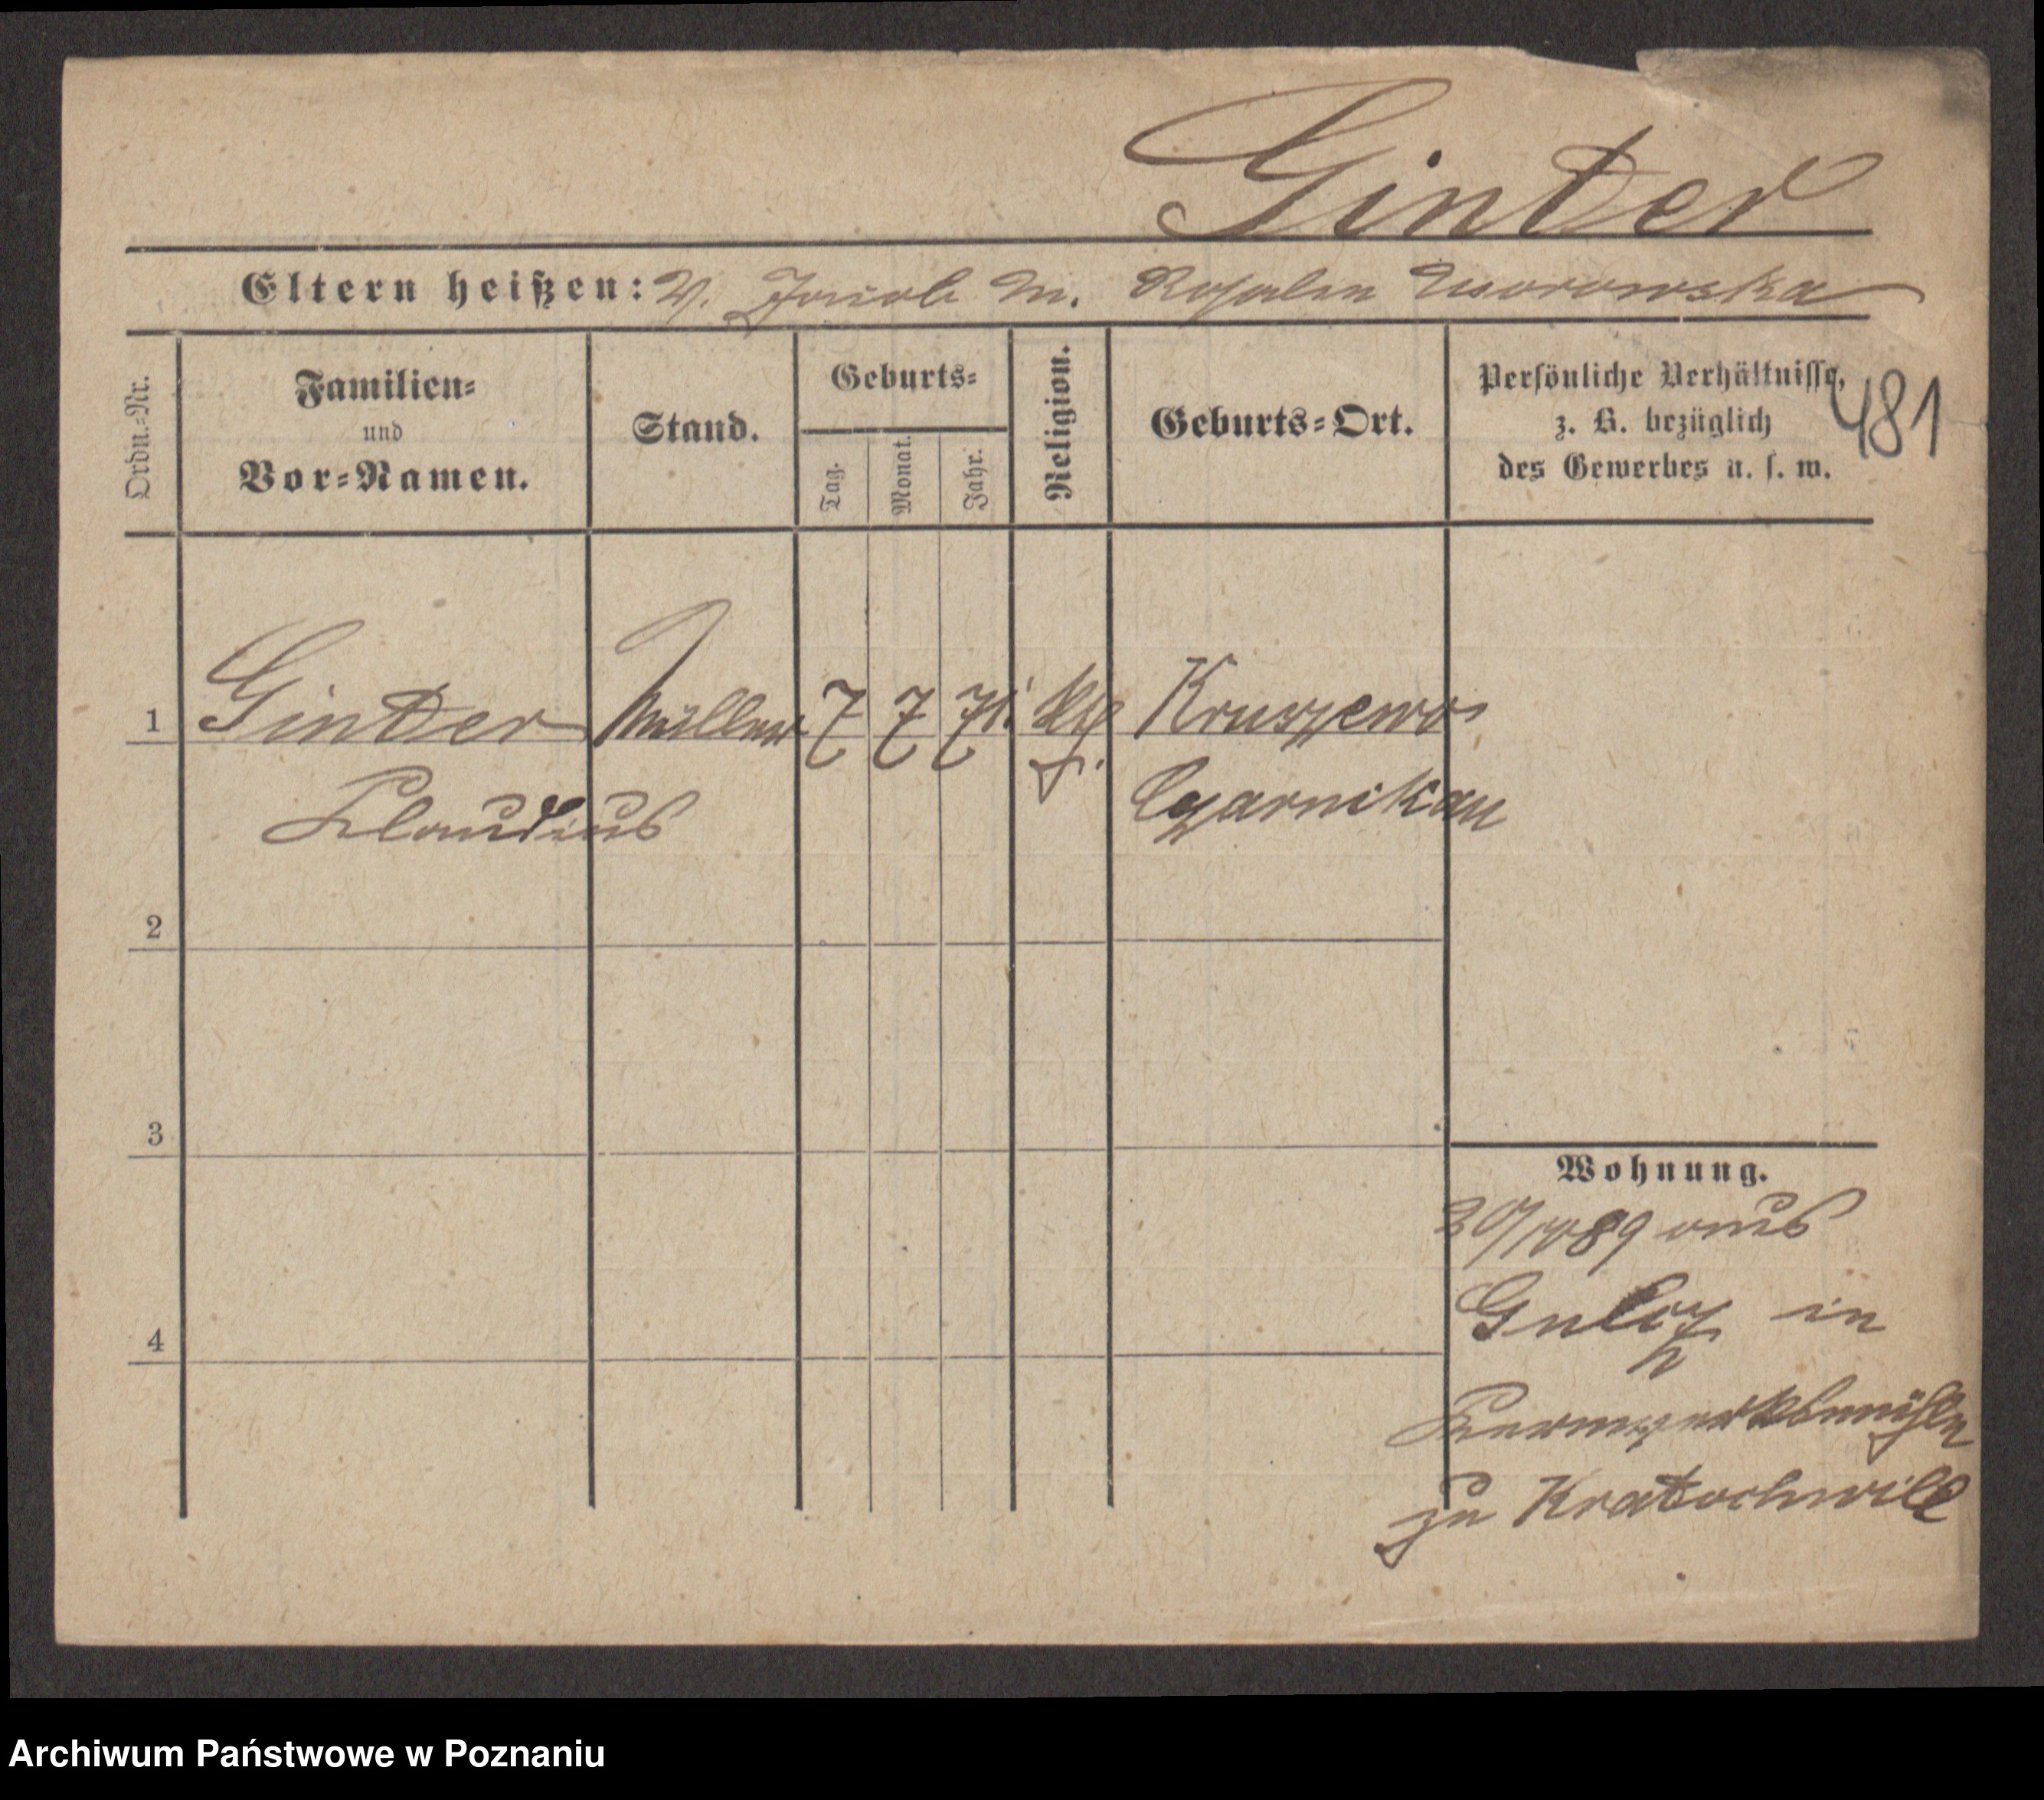 Ginter
Eltern heißen: V. Jacob M. Rosalie
Ordn.-Nr.
Familien-
und
Vor-Namen.
Stand.
Geburts-
Tag.
Monat.
Jahr.
Religion.
Geburts-Ort.
Persönliche Verhältnisse,
z. B. bezüglich
des Gewerbes u. s. w.
481
1 Ginter Müller 7 7 71. kth. Kruszewo
Klaudius Czarnikau
2
3
4
Wohnung.
89 aus
in
zu Kratochwill
Archiwum Państwowe w Poznaniu